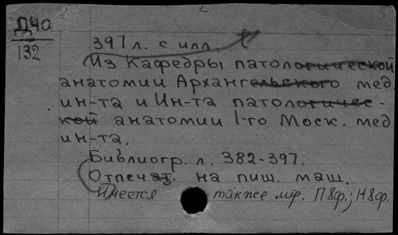 Д40
132
397 л. с илл
Из Кафедры патологической
анатомии Архангельского мед.
ин-та и Ин-та патологичес-
кой анатомии 1-го Моск. мед
ин-та.
Библиогр. л. 382-397.
Отпечат. на пиш. маш.
Имеется также мф. П8ф.; Н8ф.